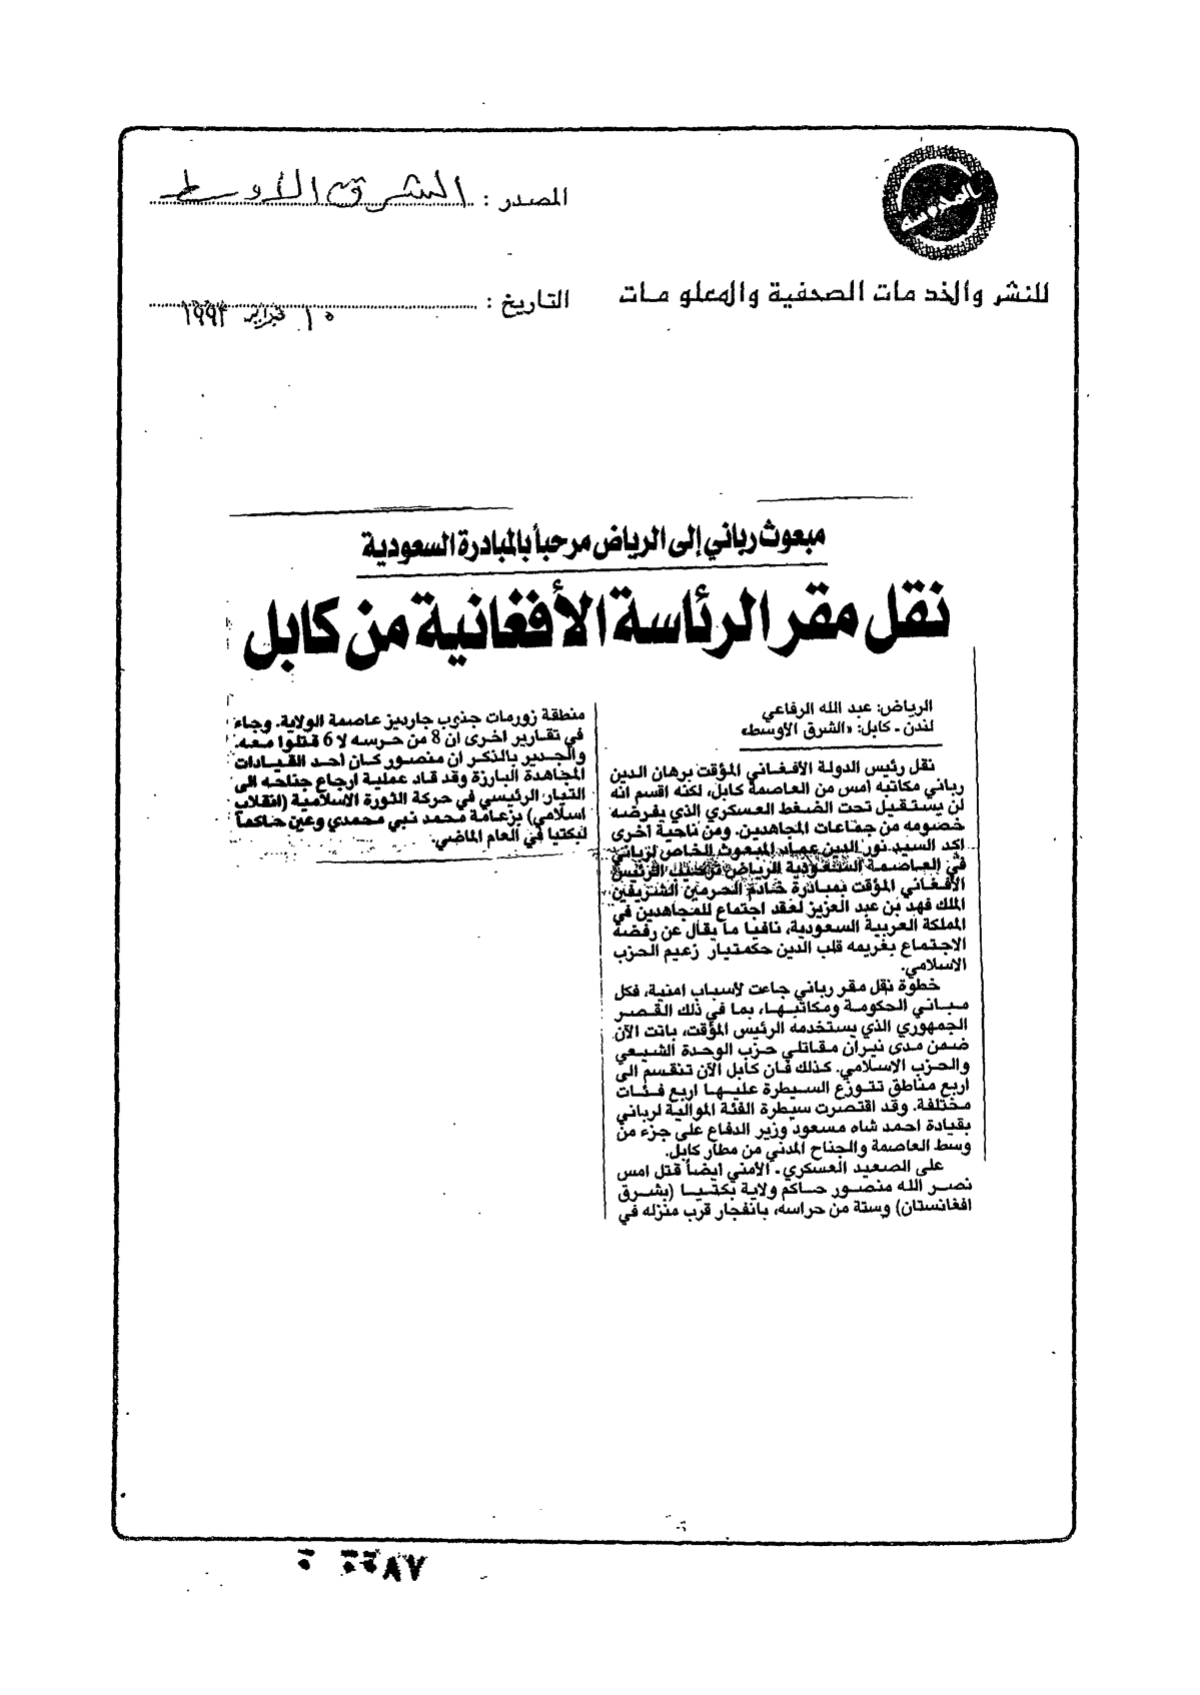 المصدر : الشرق الأوسط
للنشر والخدمات الصحفية والمعلومات
التاريخ : ١٠ فبراير ١٩٩٣
مبعوث رباني إلى الرياض مرحباً بالمبادرة السعودية
نقل مقر الرئاسة الأفغانية من كابل
الرياض: عبد الله الرفاعي
لندن ـ كابل: «الشرق الأوسط»
نقل رئيس الدولة الافغاني المؤقت برهان الدين
رباني مكاتبه امس من العاصمة كابل، لكنه اقسم انه
لن يستقيل تحت الضغط العسكري الذي يفرضه
خصومه من جماعات المجاهدين. ومن ناحية أخرى
اكد السيد نور الدين عماد المبعوث الخاص لرباني
في العاصمة السعودية الرياض ترحيب الرئيس
الافغاني المؤقت بمبادرة خادم الحرمين الشريفين
الملك فهد بن عبد العزيز لعقد اجتماع للمجاهدين في
المملكة العربية السعودية، نافيا ما يقال عن رفضه
الاجتماع بغريمه قلب الدين حكمتيار زعيم الحزب
الاسلامي.
خطوة نقل مقر رباني جاءت لأسباب امنية، فكل
مباني الحكومة ومكاتبها، بما في ذلك القصر
الجمهوري الذي يستخدمه الرئيس المؤقت، باتت الآن
ضمن مدى نيران مقاتلي حزب الوحدة الشيعي
والحزب الاسلامي. كذلك فان كابل الآن تنقسم الى
اربع مناطق تتوزع السيطرة عليها اربع فئات
مختلفة. وقد اقتصرت سيطرة الفئة الموالية لرباني
بقيادة احمد شاه مسعود وزير الدفاع على جزء من
وسط العاصمة والجناح المدني من مطار كابل.
على الصعيد العسكري ـ الأمني أيضاً قتل امس
نصر الله منصور حاكم ولاية بكتيا (بشرق
افغانستان) وستة من حراسه، بانفجار قرب منزله في
منطقة زورمات جنوب جارديز عاصمة الولاية. وجاء
في تقارير اخرى ان 8 من حرسه لا 6 قتلوا معه.
والجدير بالذكر ان منصور كان أحد القيادات
المجاهدة البارزة وقد قاد عملية ارجاع جناحه الى
التيار الرئيسي في حركة الثورة الاسلامية (انقلاب
اسلامي) بزعامة محمد نبي محمدي وعين حاكماً
لبكتيا في العام الماضي.